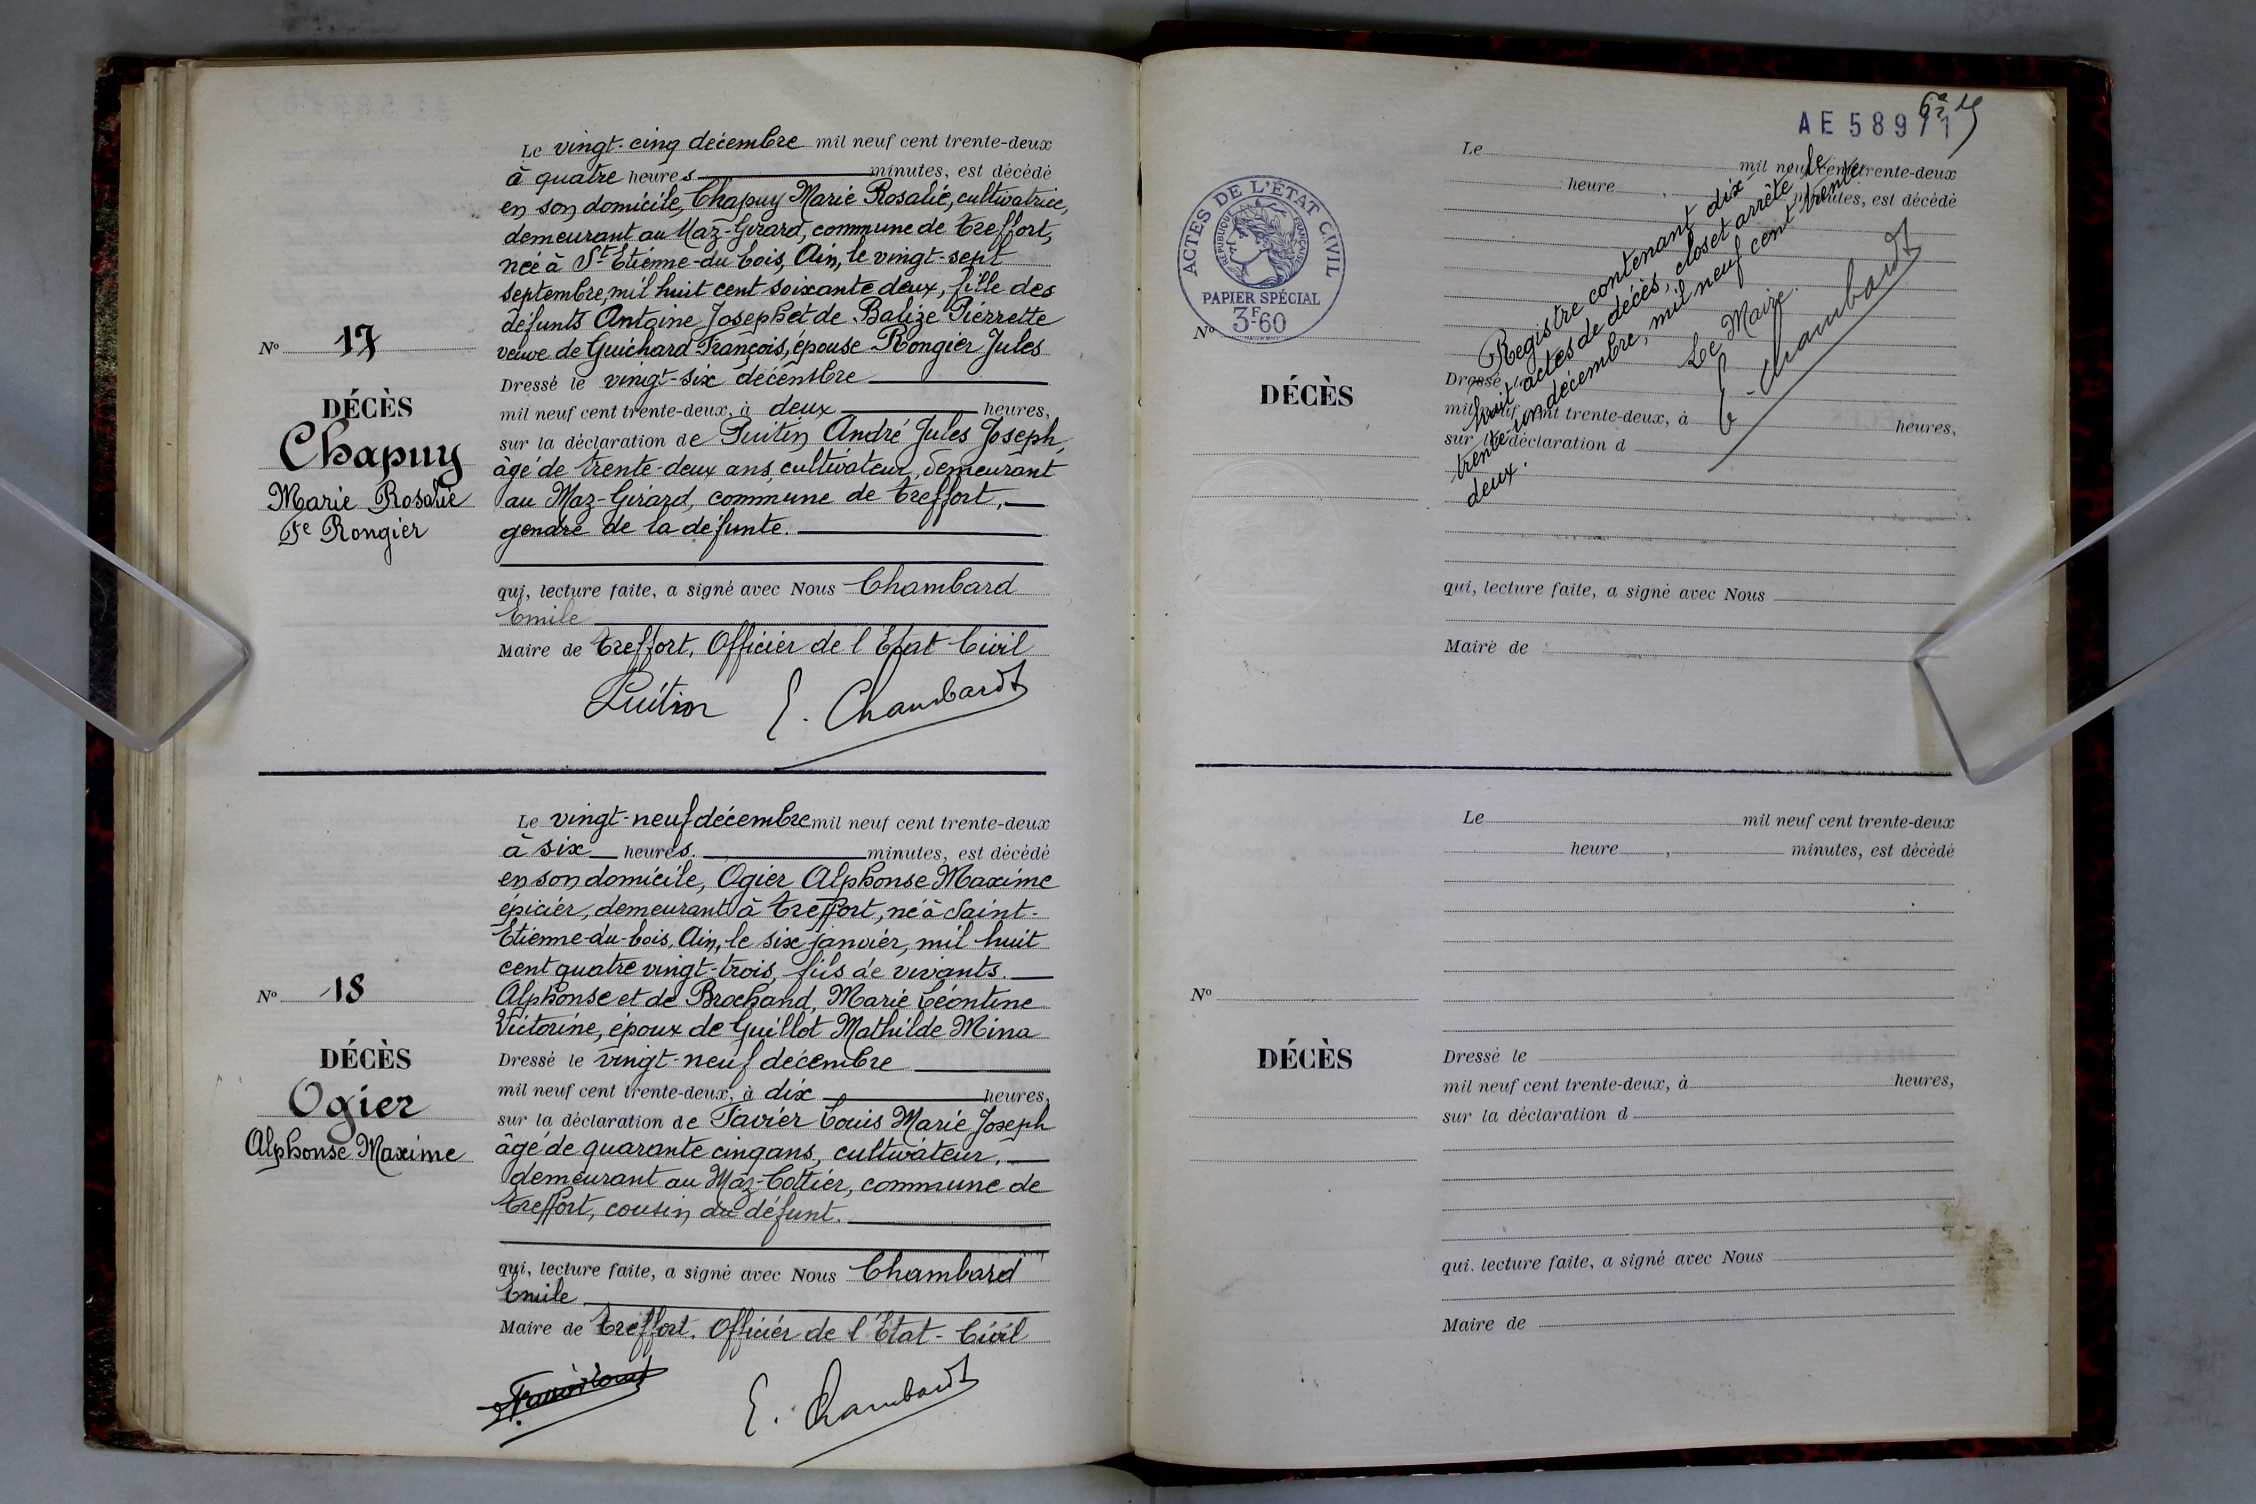 Le vingt-cinq décembre mil neuf cent trente-deux
à quatre heures minutes, est décédé
en son domicile, Chapuy Marie Rosalie, cultivatrice,
demeurant au Maz-Girard, commune de Treffort,
née à St Etienne-du-bois, Ain, le vingt-sept
septembre, mil huit cent soixante deux, fille des
défunts Antoine Joseph et de Balize Pierrette
veuve de Guichard François, épouse Rongier Jules
Nº 17
DÉCÈS
Chapuy
Marie Rosalie
Fe Rongier
Dressé le vingt-six décembre
mil neuf cent trente-deux, à deux heures,
sur la déclaration de Puitin André Jules Joseph,
âgé de trente-deux ans, cultivateur, demeurant
au Maz-Girard, commune de Treffort,
gendre de la défunte.
qui, lecture faite, a signé avec Nous Chambard
Emile
Maire de Treffort, Officier de l'Etat-Civil
Puitin E. Chambard
Le vingt-neuf décembre mil neuf cent trente-deux
à six heures. minutes, est décédé
en son domicile, Ogier Alphonse Maxime
épicier, demeurant à Treffort, né à Saint-
Etienne-du-bois, Ain, le six janvier, mil huit
cent quatre vingt-trois, fils de vivants.
Alphonse et de Brochand, Marie Léontine
Victorine, époux de Guillot Mathilde Mina
Nº 18
DÉCÈS
Ogier
Alphonse Maxime
Dressé le vingt-neuf décembre
mil neuf cent trente-deux, à dix heures,
sur la déclaration de Favier Louis Marie Joseph
âgé de quarante cinq ans, cultivateur,
demeurant au Maz-Cottier, commune de
Treffort, cousin du défunt.
qui, lecture faite, a signé avec Nous Chambard
Emile
Maire de Treffort. Officier de l'Etat-Civil
E. Chambard
AE 589/1
Le mil neuf cent trente-deux
heure , minutes, est décédé
ACTES DE L'ÉTAT CIVIL
RÉPUBLIQUE FRANÇAISE
PAPIER SPÉCIAL
3F60
Nº
DÉCÈS
Registre contenant dix-
huit actes de décès, clos et arrêté, le
trente-un décembre, mil neuf cent trente
deux.
Le Maire.
E. Chambard
Dressé le
mil neuf cent trente-deux, à heures,
sur la déclaration d
qui, lecture faite, a signé avec Nous
Maire de
Le mil neuf cent trente-deux
heure , minutes, est décédé
Nº
DÉCÈS
Dressé le
mil neuf cent trente-deux, à heures,
sur la déclaration d
qui, lecture faite, a signé avec Nous
Maire de